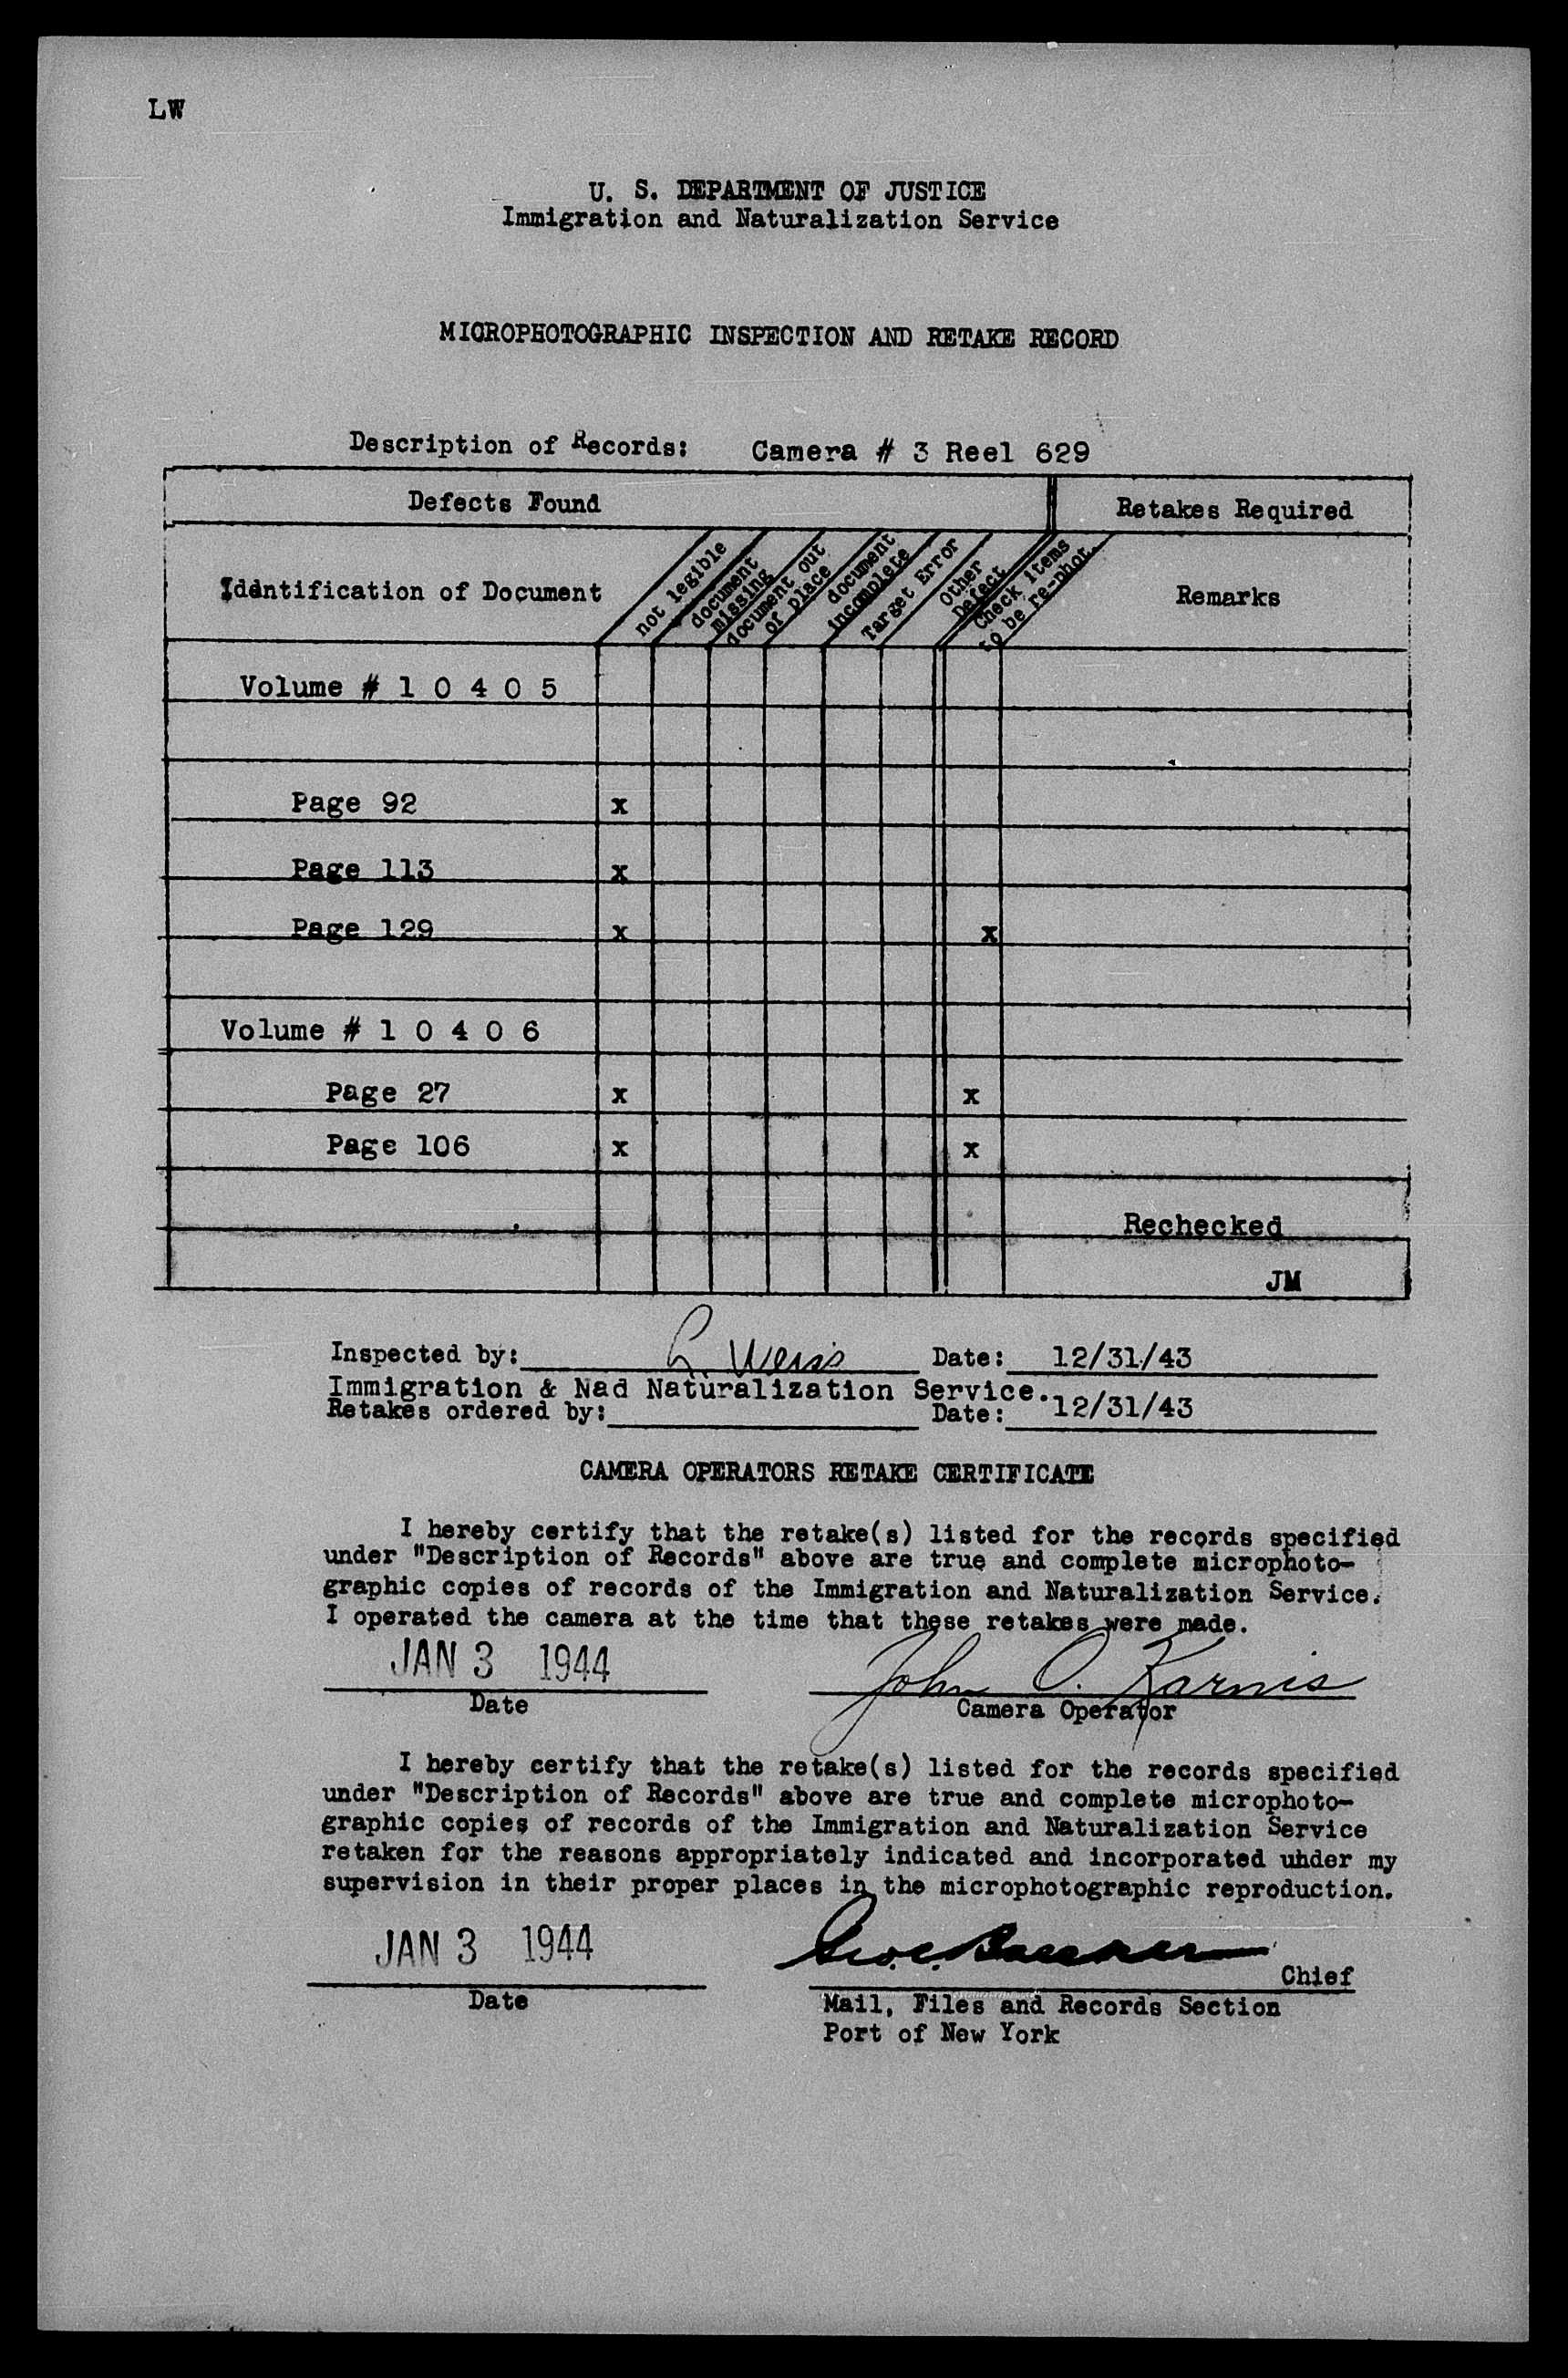 LW
U. S. DEPARTMENT OF JUSTICE
Immigration and Naturalization Service
MICROPHOTOGRAPHIC INSPECTION AND RETAKE RECORD
Description of Records: Camera # 3 Reel 629
Defects Found Retakes Required
Identification of Document
not legible
document missing
document out of place
document incomplete
Target Error
Other Defect
Check items to be re-phot.
Remarks
Volume # 1 0 4 0 5
Page 92 x
Page 113 x
Page 129 x x
Volume # 1 0 4 0 6
Page 27 x x
Page 106 x x
Rechecked
JM
Inspected by: L Weiss Date: 12/31/43
Immigration & Nad Naturalization Service.
Retakes ordered by: Date: 12/31/43
CAMERA OPERATORS RETAKE CERTIFICATE
I hereby certify that the retake(s) listed for the records specified
under "Description of Records" above are true and complete microphoto-
graphic copies of records of the Immigration and Naturalization Service.
I operated the camera at the time that these retakes were made.
JAN 3 1944 John O. Karnis
Date Camera Operator
I hereby certify that the retake(s) listed for the records specified
under "Description of Records" above are true and complete microphoto-
graphic copies of records of the Immigration and Naturalization Service
retaken for the reasons appropriately indicated and incorporated under my
supervision in their proper places in the microphotographic reproduction.
JAN 3 1944 Chief
Date Mail, Files and Records Section
Port of New York